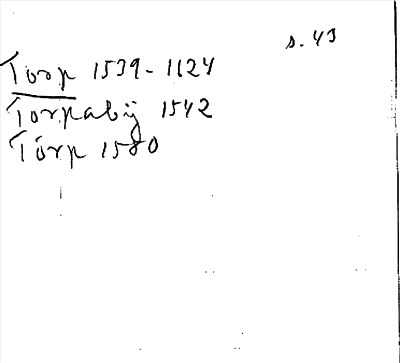 s. 43
Torp 1539-1624
Torpabÿ 1542
Törp 1580